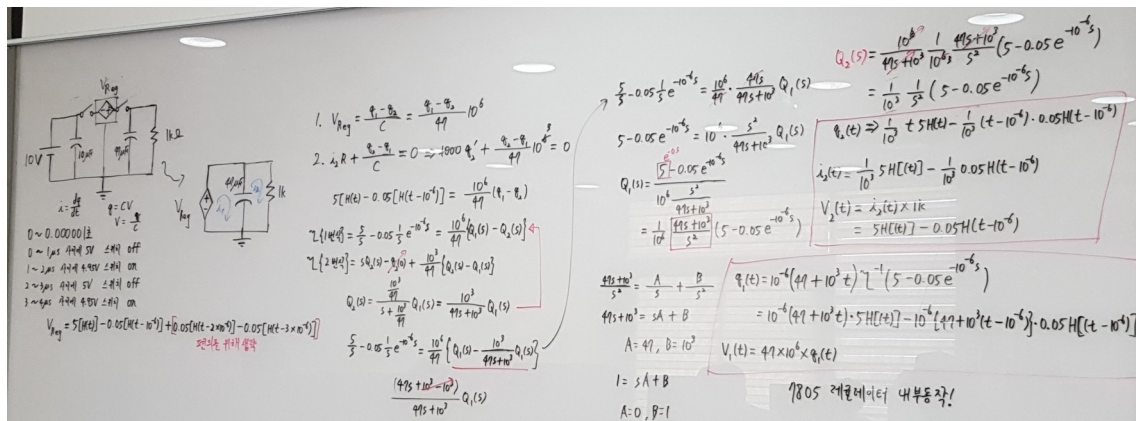 V_Reg
10V
10μF
47μF
1kΩ
i = dq/dt
q = CV
V = q/C
V_Reg
47μF
i₁
i₂
1k
0 ~ 0.000001초
0 ~ 1μs 사이에 5V 스위치 off
1 ~ 2μs 사이에 4.95V 스위치 on
2 ~ 3μs 사이에 5V 스위치 off
3 ~ 4μs 사이에 4.95V 스위치 on
V_Reg = 5[H(t)] - 0.05[H(t-10⁻⁶)] + [0.05[H(t-2×10⁻⁶)] - 0.05[H(t-3×10⁻⁶)]]
편의를 위해 생략
1. V_Reg = (q₁-q₂)/C = (q₁-q₂)/47 10⁶
2. i₂R + (q₂-q₁)/C = 0 ⇒ 1000 q₂' + (q₂-q₁)/47 10⁶ ³ = 0
5[H(t)] - 0.05[H(t-10⁻⁶)] = 10⁶/47 (q₁-q₂)
{1번식} = 5/s - 0.05 1/s e^(-10⁻⁶s) = 10⁶/47 {Q₁(s) - Q₂(s)}
{2번식} = sQ₂(s) - q₂(0) + 10³/47 {Q₂(s) - Q₁(s)}
Q₂(s) = (10³/47)/(s + 10³/47) Q₁(s) = 10³/(47s+10³) Q₁(s)
5/s - 0.05 1/s e^(-10⁻⁶s) = 10⁶/47 {Q₁(s) - 10³/(47s+10³) Q₁(s)}
(47s+10³-10³)/(47s+10³) Q₁(s)
5/s - 0.05 1/s e^(-10⁻⁶s) = 10⁶/47 · 47s/(47s+10³) Q₁(s)
5 - 0.05e^(-10⁻⁶s) = 10⁶ · s²/(47s+10³) Q₁(s)
e^(-0·s)
Q₁(s) = (5 - 0.05e^(-10⁻⁶s))/(10⁶ s²/(47s+10³))
= 1/10⁶ (47s+10³)/s² (5 - 0.05e^(-10⁻⁶s))
(47s+10³)/s² = A/s + B/s²
47s+10³ = sA + B
A = 47, B = 10³
1 = sA + B
A = 0, B = 1
Q₂(s) = 10³/(47s+10³) 1/10⁶ ³ (47s+10³)/s² (5 - 0.05e^(-10⁻⁶s))
= 1/10³ 1/s² (5 - 0.05e^(-10⁻⁶s))
q₂(t) ⇒ 1/10³ t 5H(t) - 1/10³ (t-10⁻⁶) · 0.05H(t-10⁻⁶)
i₂(t) = 1/10³ 5H[(t)] - 1/10³ 0.05H(t-10⁻⁶)
V₂(t) = i₂(t) × 1k
= 5H[(t)] - 0.05H(t-10⁻⁶)
q₁(t) = 10⁻⁶(47 + 10³t) ℒ⁻¹(5 - 0.05e^(-10⁻⁶s))
= 10⁻⁶(47+10³t) · 5H[(t)] - 10⁻⁶{47+10³(t-10⁻⁶)} · 0.05H[(t-10⁻⁶)]
V₁(t) = 47×10⁶ × q₁(t)
7805 레귤레이터 내부동작!